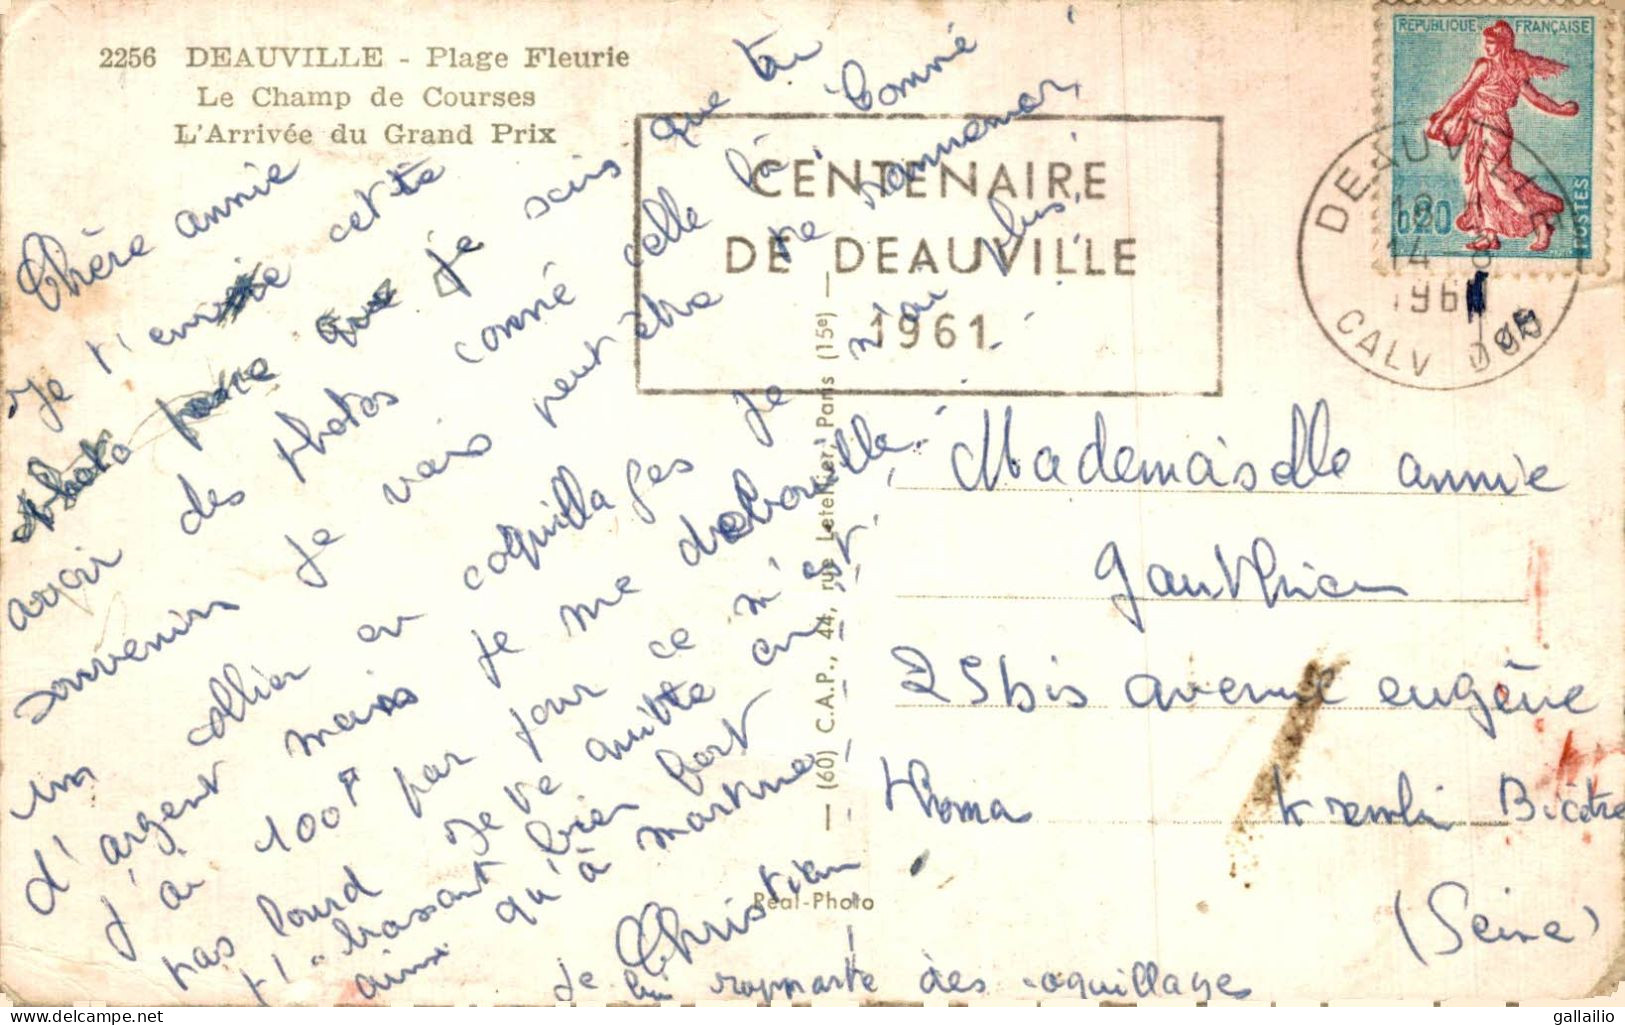 2256 DEAUVILLE - Plage Fleurie
Le Champ de Courses
L'Arrivée du Grand Prix
Chère annie
Je t'envoie cette
photo parce que je sais que tu
avoir des photos comme celle là comme
souvenirs je vais peut être te ramener
un collier en coquillages je n'ai plus
d'argent mais je me debrouille
j'ai 100F par jour ce n'est
pas lourd je te quitte en
t'brassant bien fort
ainsi qu'à martine
Christian
je lui rapporte des coquillages
CENTENAIRE
DE DEAUVILLE
1961
REPUBLIQUE FRANÇAISE
0.20
POSTES
DEAUVILLE
14
196
CALV
Mademaiselle annie
Gauthier
25bis avenue eugène
thoma Kremlin Bicêtre
(Seine)
— (60) C.A.P., 44, rue Letellier, Paris (15e) —
Réal-Photo
gallailio
delcampe.net